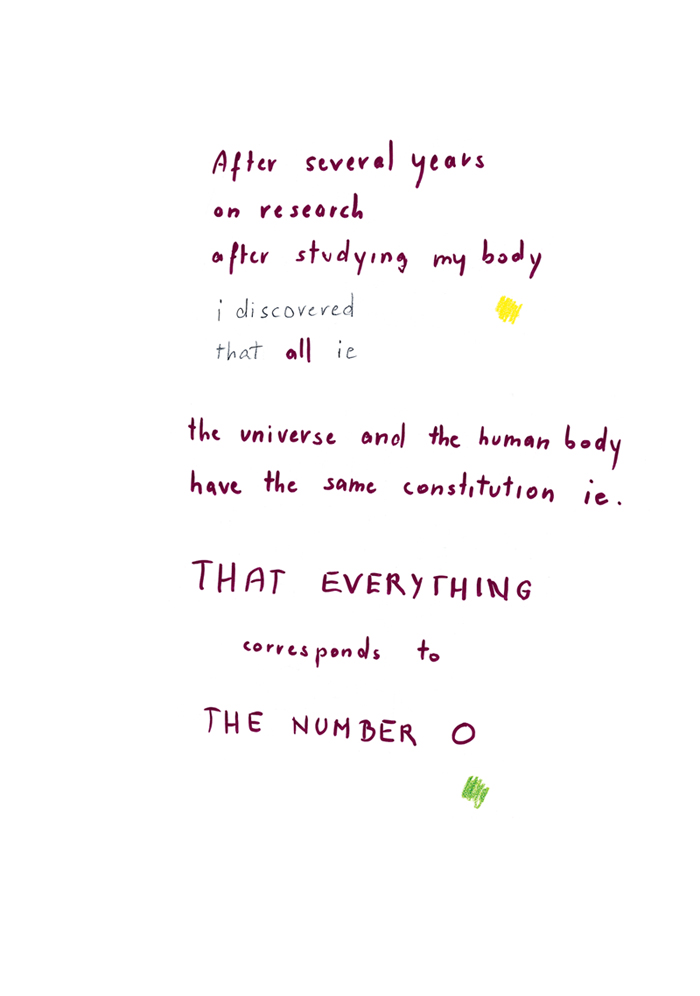 After several years
on research
after studying my body
i discovered
that all ie
the universe and the human body
have the same constitution ie.
THAT EVERYTHING
corresponds to
THE NUMBER 0